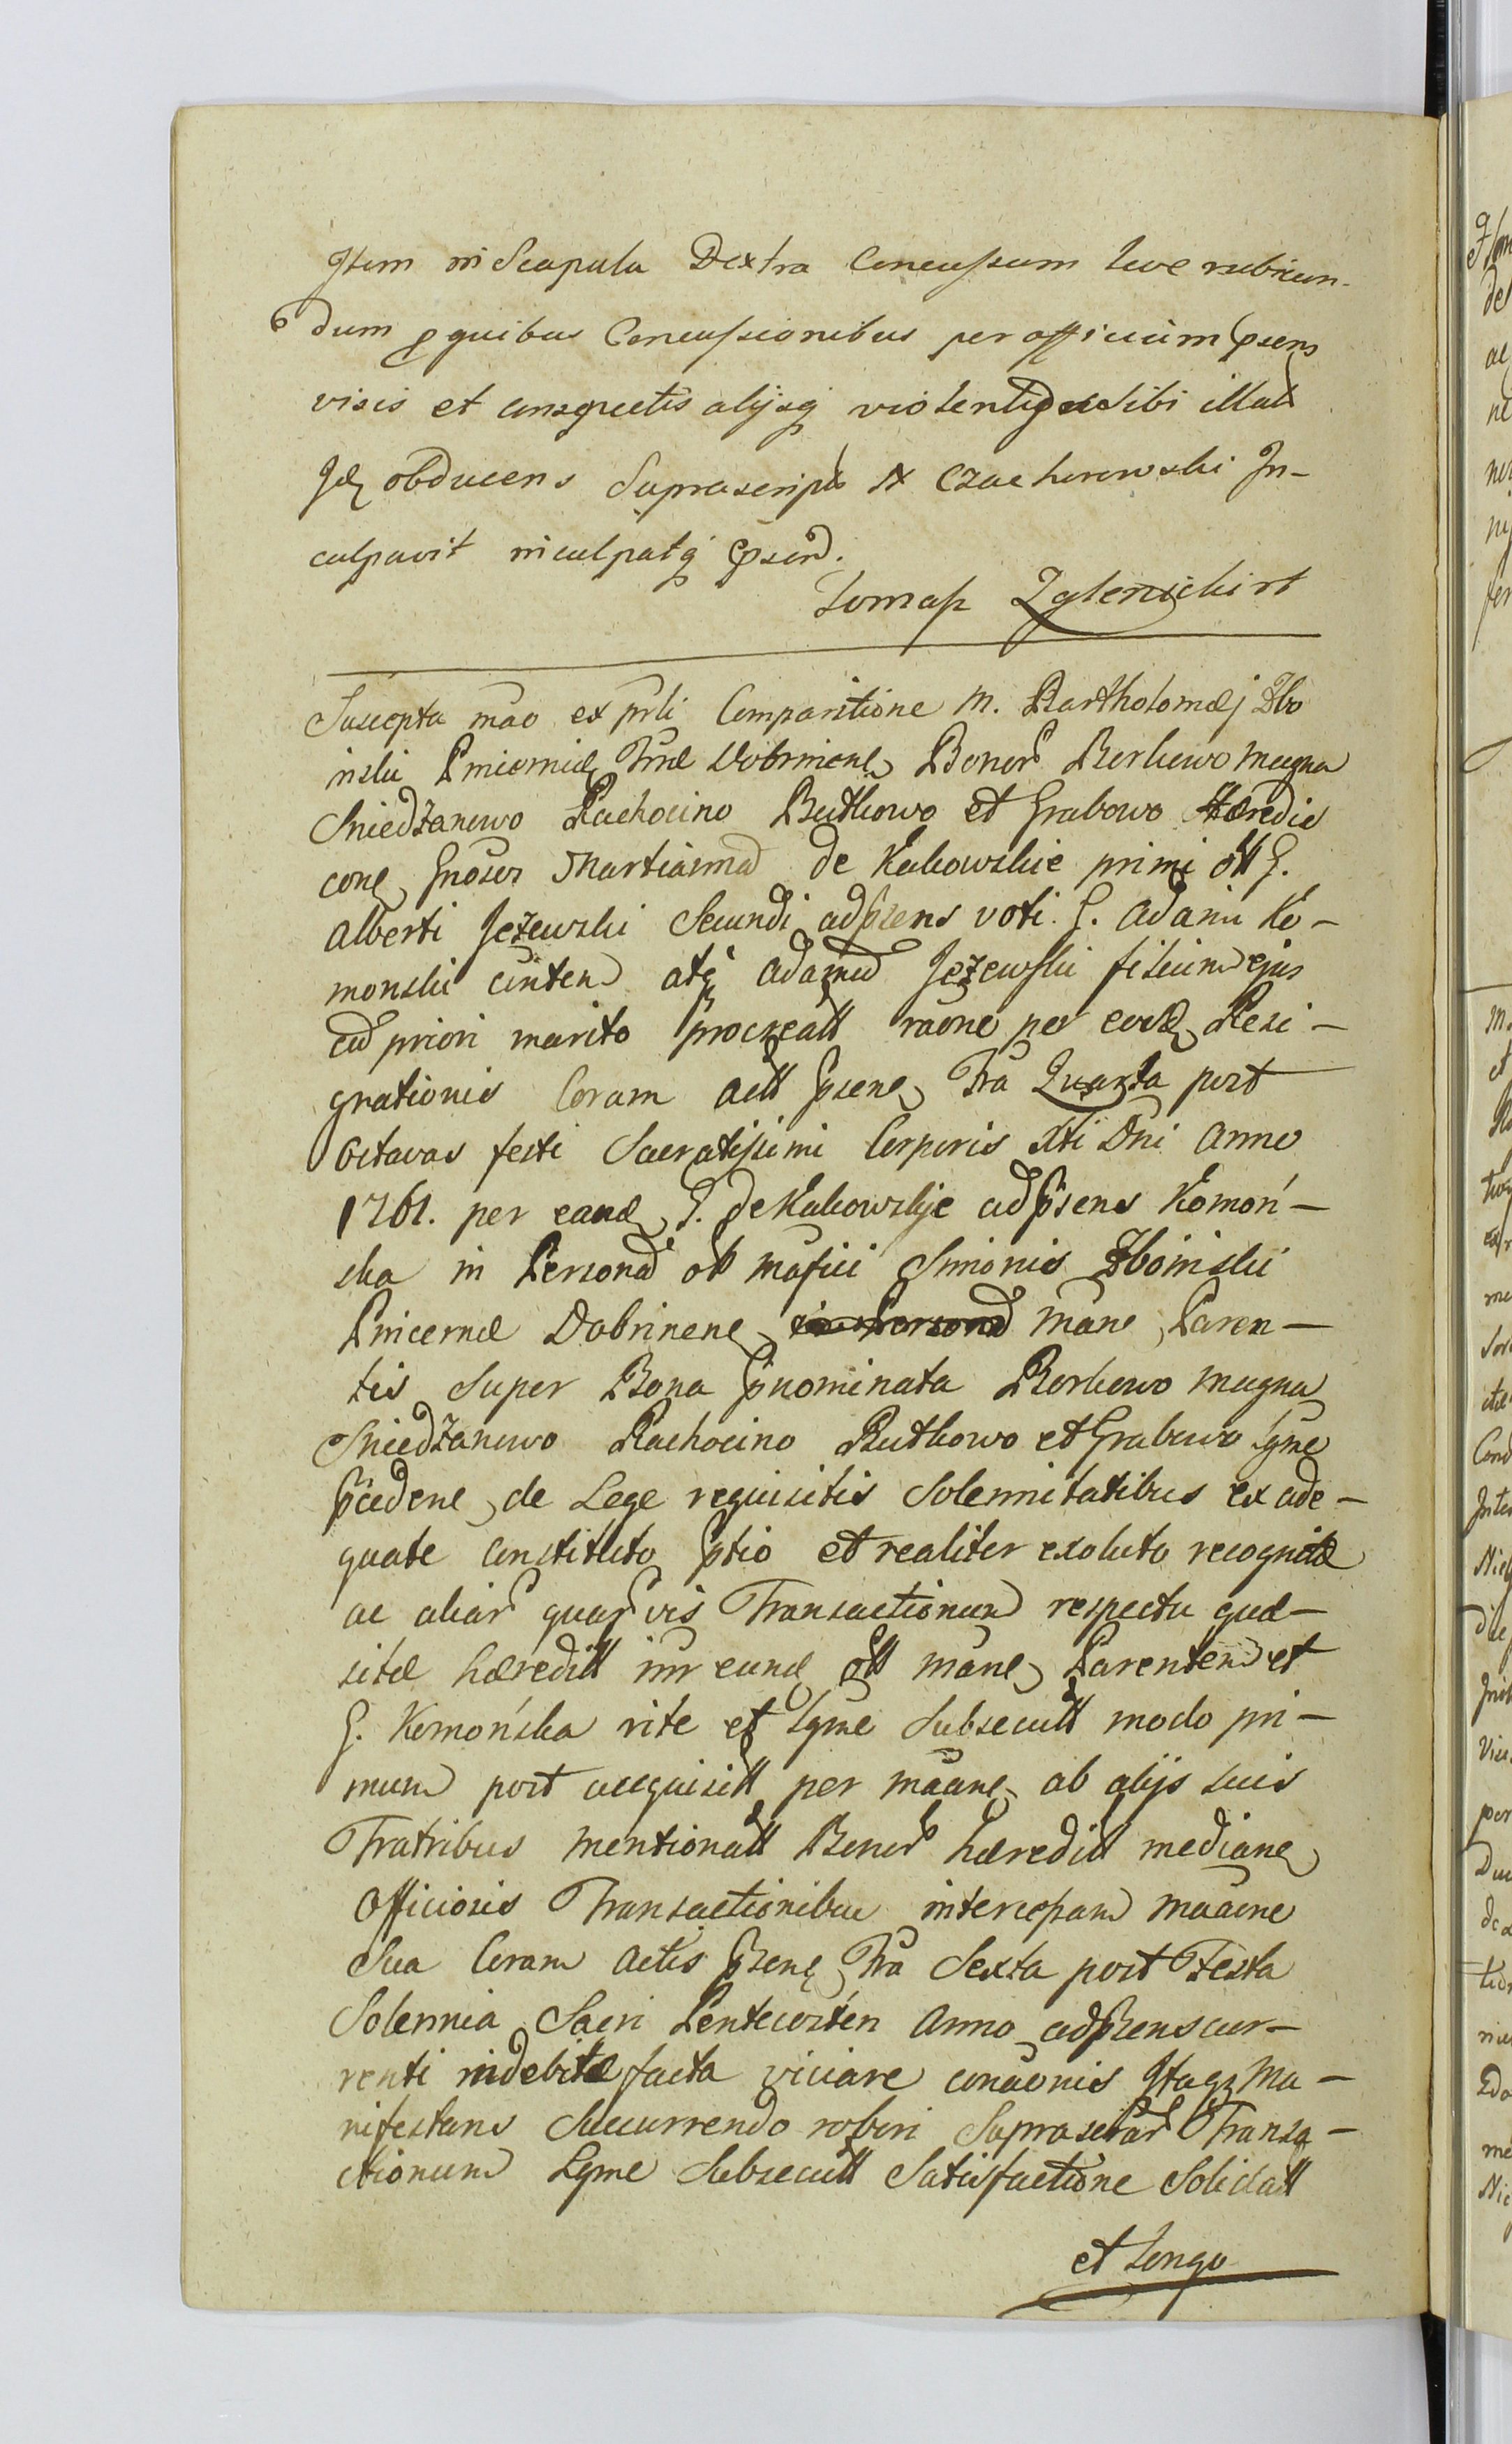 Item in Scapula Dextra Concussum leve rubicun-
dum p quibus Concussionibus per officium psens
visis et conspectis alijsq violentijs sibi illat
Idem obducens Suprascript N Czachorowski In-
culpavit inculpatq psent.
Tomasz Zglenicki
Suscepta mao ex prli Comparitione M. Bartholomæj Zbo
inski Pincernæ Træ Dobrinen Bonor Borkowo magna
Sniedzanowo Rachocino Rutkowo et Grabowo Hæredis
cone Gnosus Martianna de Kakowskie primi olt G.
Alberti Jeżewski Secundi adpsens voti G. Adami Ko-
monski conten atq Adamum Jeżewski filium ejus
cum priori marito procreatt raone per eand Resi-
gnationis Coram Actt psene Fra Quarta post
Octavas festi Sacratissimi Corporis Xti Dni Anno
1761. per eand G. de Kakowskje adpsens Komoń-
ska in Personam olt Mafici Simonis Zboinski
Pincernæ Dobrinen in Personam mane Paren-
tis Super Bona pnominata Borkowo magna
Sniedzanowo Rachocino Rutkowo et Grabowo lgme
pcedene de Lege requisitis Solennitatibus ex ade-
quate constituto ptio et realiter exoluto recognitæ
ac aliar quarvis Transactionum respectu quæ-
sitæ hæreditt inr eund olt mane Parentem et
G. Komońska rite et lgme Subsecutt modo pri-
mum post acquisitt per maane ab alijs suis
Fratribus mentionatt Bonor hæreditt mediane
Officiosis Transactionibus intercepam maaone
Sua Coram Actis psene Fra Sexta post Festa
Solennia Sacri Pentecosten Anno adpsens cur-
renti indebitæ facta viciare conaonis Itaq Ma-
nifestans Succurrendo robori Suprascptar Transa-
ctionum Lgme Subsecutt Satisfactione Solidatt
et longo